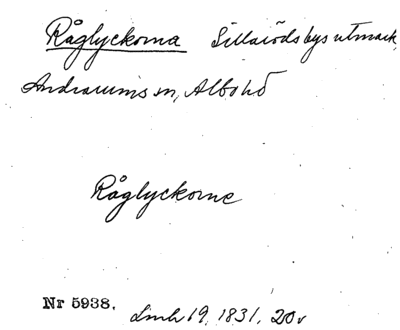 Råglyckorna Sillarödsbys utmark,
Andrarums sn, Albo hd
Råglyckorne
Nr 5938. Lmh 19, 1831, 20v